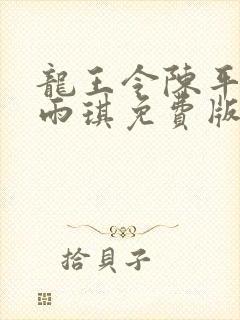 龍王令陳平
雨琪免費版
拾貝子